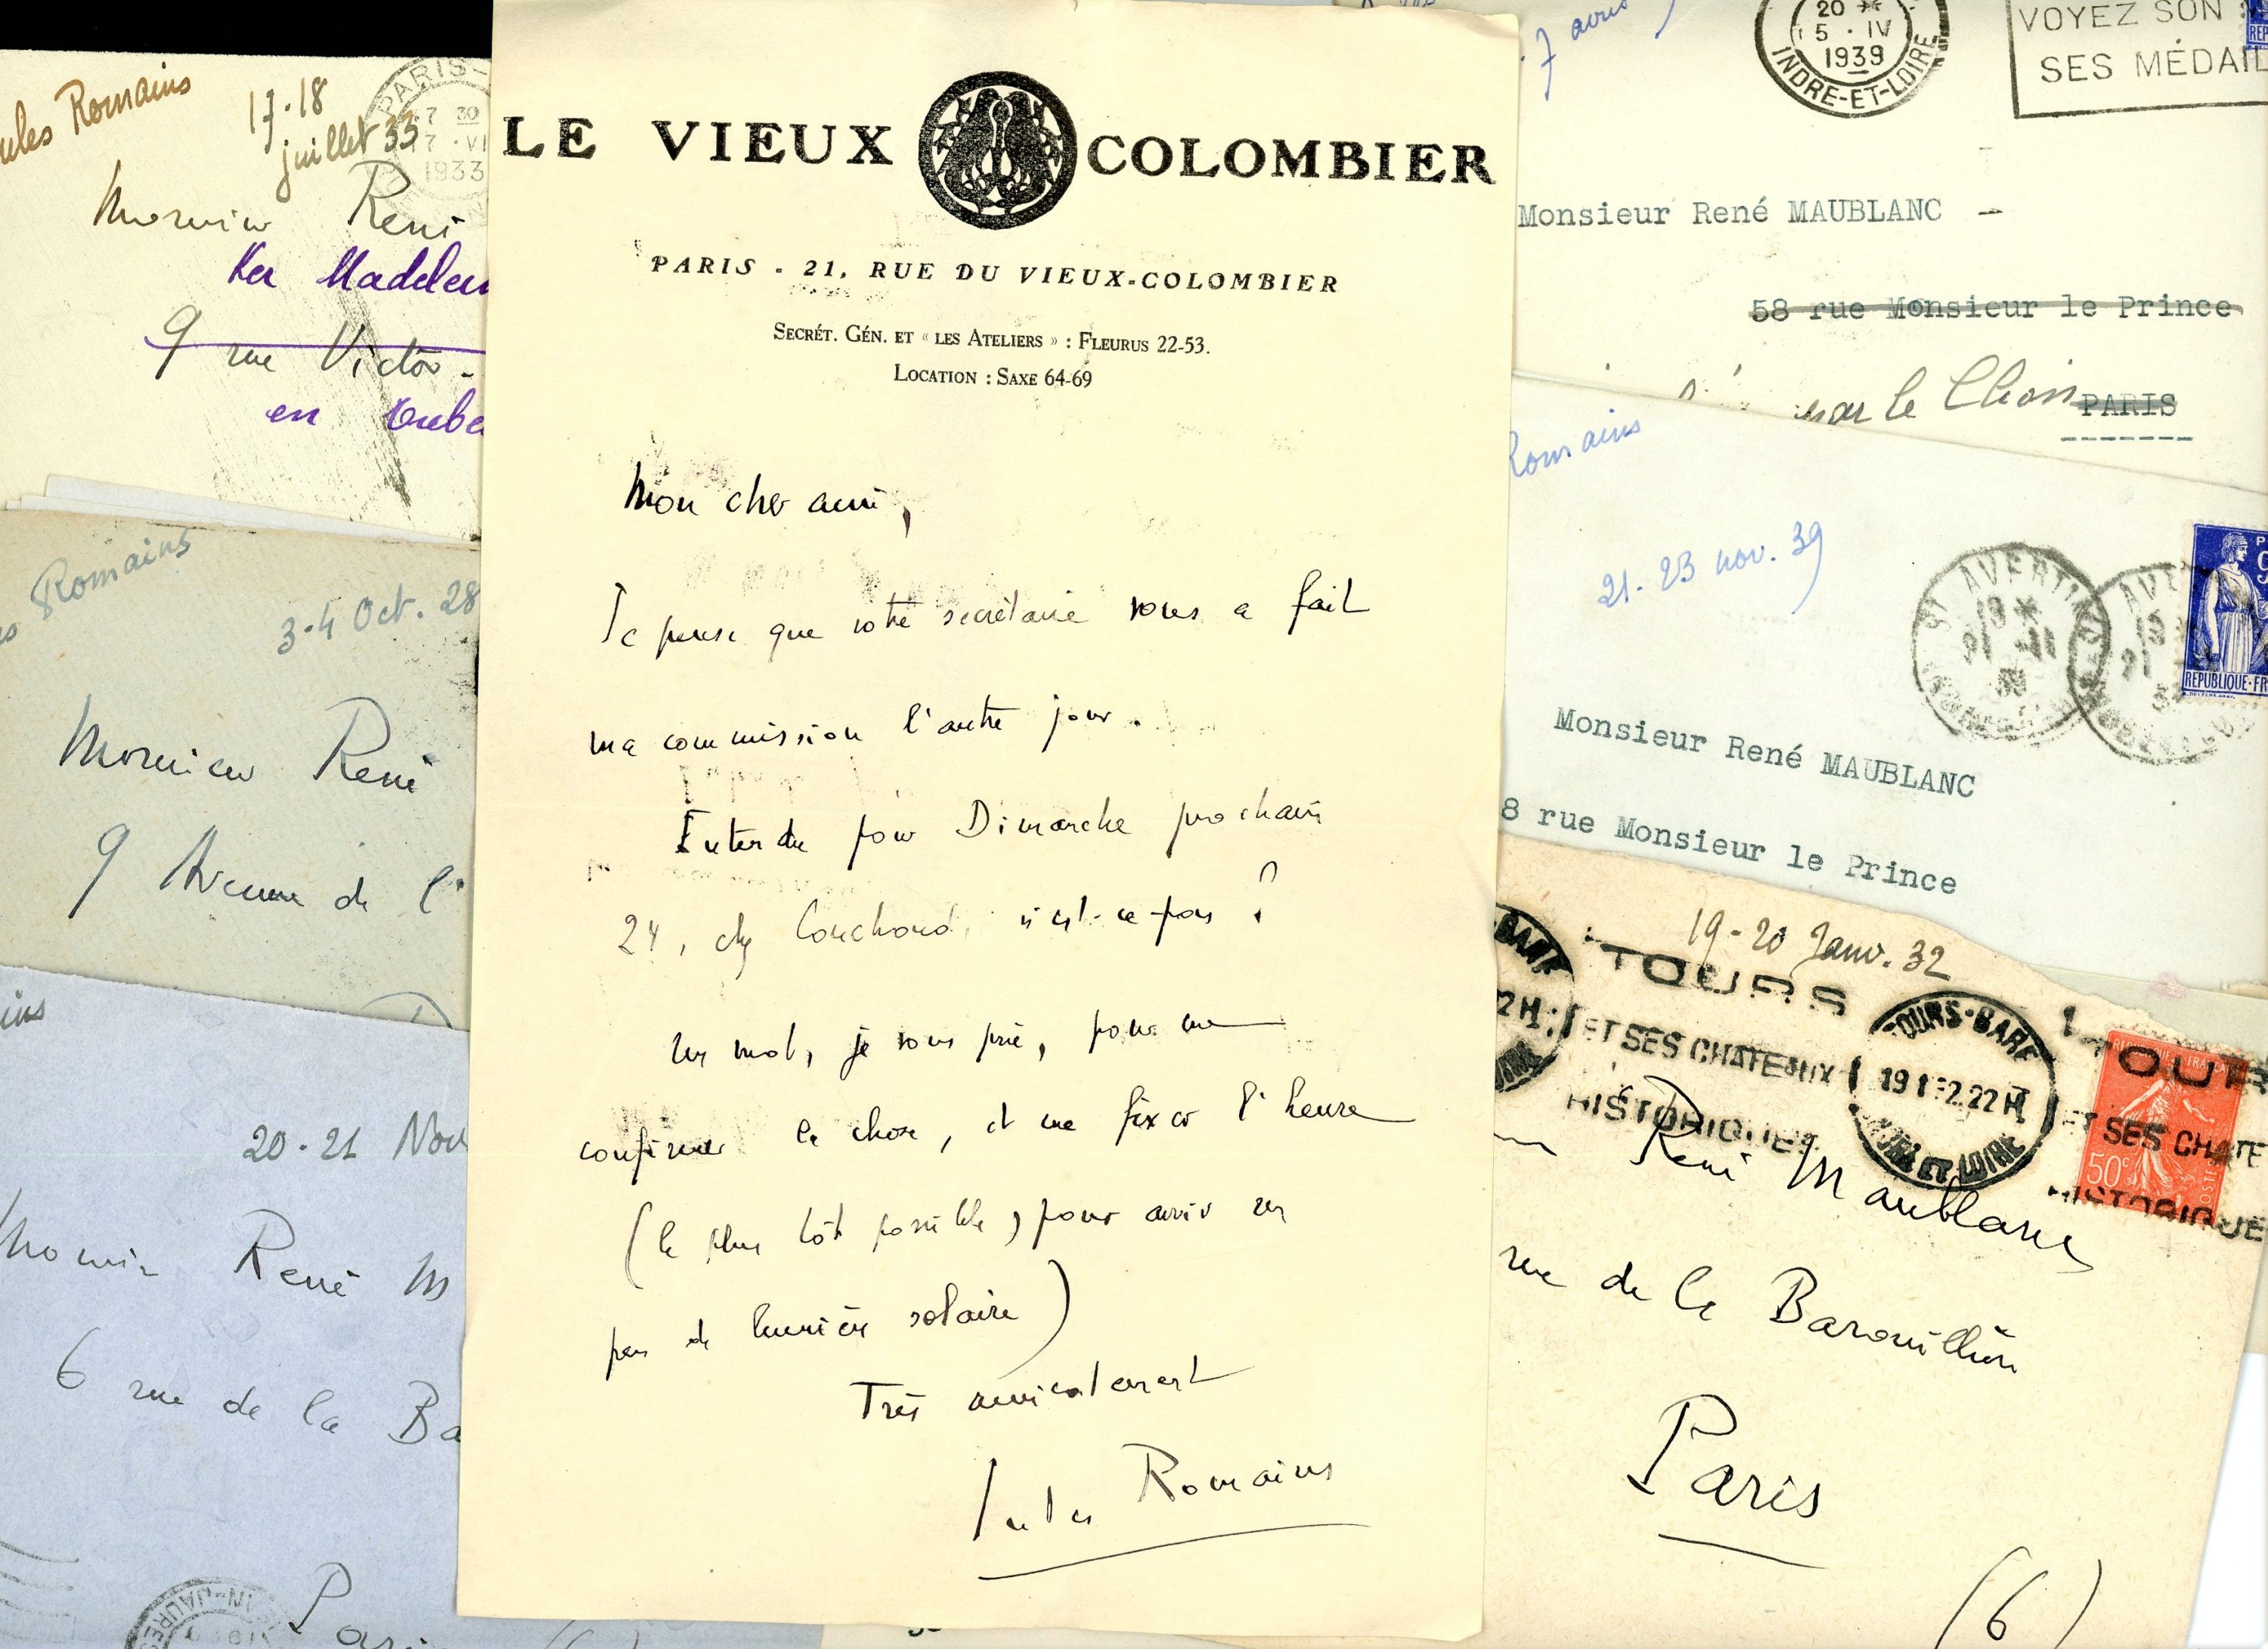 LE VIEUX COLOMBIER
PARIS - 21, RUE DU VIEUX-COLOMBIER
SECRÉT. GÉN. ET « LES ATELIERS » : FLEURUS 22-53.
LOCATION : SAXE 64-69
Mon cher ami,
Je pense que votre secrétaire vous a fait
ma commission l'autre jour.
Entendu pour Dimanche prochain
24, chez Couchoud, n'est-ce pas ?
Un mot, je vous prie, pour me
confirmer la chose, et me fixer l'heure
(le plus tôt possible, pour avoir un
peu de lumière solaire)
Très amicalement
Jules Romains
Jules Romains
17-18
juillet 33
PARIS
1933
Monsieur René
Ker
9 rue Victor-
en
Romains
3-4 Oct. 28
Monsieur René
9 Avenue de l'
20-21 Nov
Monsieur René M
6 rue de la Ba
7 avril
20
5 · IV
1939
INDRE-ET-LOIRE
VOYEZ SON
SES MÉDAIL
Monsieur René MAUBLANC -
58 rue Monsieur le Prince
par le
PARIS
Romains
21-23 nov. 39
ST AVERTIN
REPUBLIQUE-FR
Monsieur René MAUBLANC
8 rue Monsieur le Prince
19-20 Janv. 32
TOURS
ET SES CHATEAUX
HISTORIQUES
TOURS-BARE
INDRE ET LOIRE
ET SES CHATE
HISTORIQUE
50c
René Maublanc
rue de la Barouillère
Paris
(6)